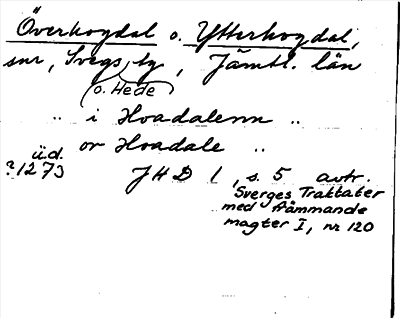 Överhogdal o. Ytterhogdal,
snr, Svegs tg, Jämtl. län
o. Hede
.. i Hoadalenn ..
or Hoadale ..
ü.d.
?1273 JHD 1, s. 5 avtr.
Sverges Traktater
med främmande
magter I, nr 120